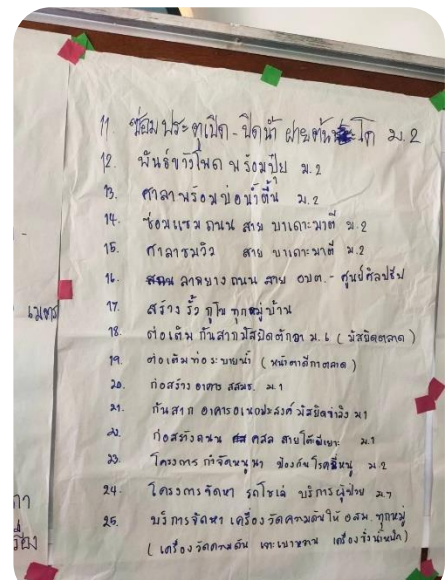 11. ซ่อมประตูเปิด-ปิดน้ำ ฝายต้น โต ม.2
12. พันธ์ข้าวโพด พร้อมปุ๋ย ม.2
13. ศาลาพร้อมบ่อน้ำตื้น ม.2
14. ซ่อมแซมถนน สาย บาเกาะมาตี ม.2
15. ศาลาชมวิว สาย บาเกาะมาตี ม.2
16. ลาดยางถนน สาย อบต. - ศูนย์ศิลปชีพ
17. สร้าง รั้ว กูโบ ทุกหมู่บ้าน
18. ต่อเติม กันสาดมัสยิดตักวา ม.6 (มัสยิดตลาด)
19. ต่อเติมท่อระบายน้ำ (หน้าตาดีกาตลาด)
20. ก่อสร้าง อาคาร สสมช. ม.1
21. กันสาด อาคารอเนกประสงค์ มัสยิด ม.1
22. ก่อสร้างถนน คสล สาย ม.1
23. โครงการ กำจัดหนูนา ป้องกันโรคฉี่หนู ม.2
24. โครงการจัดหา รถโซเล่ บริการผู้ป่วย ม.7
25. บริการจัดหา เครื่องวัดความดันให้ อสม. ทุกหมู่
(เครื่องวัดความดัน เจาะเบาหวาน เครื่องชั่งน้ำหนัก)
เมตร